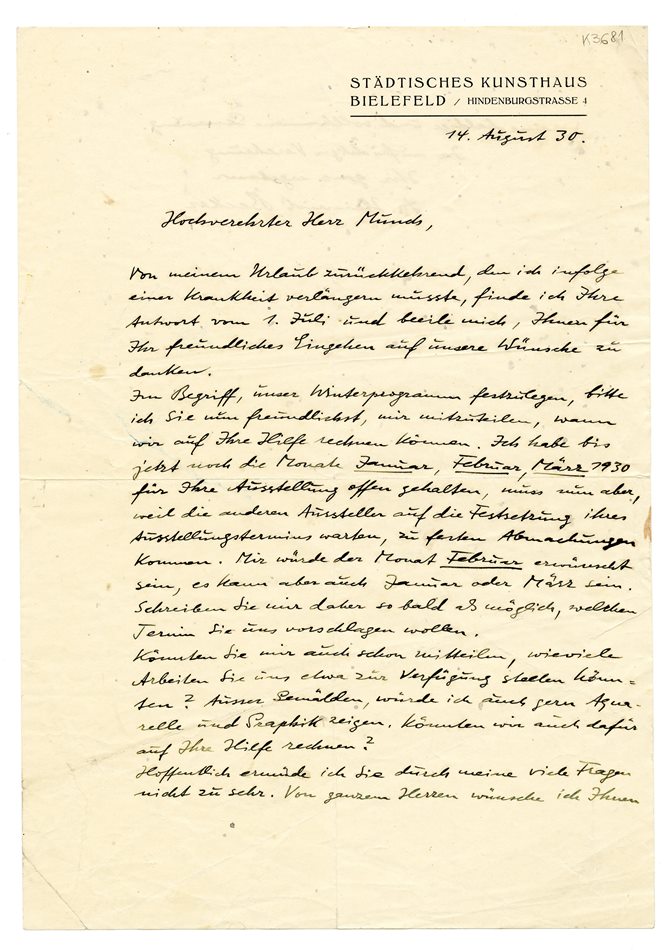 K3681
STÄDTISCHES KUNSTHAUS
BIELEFELD / HINDENBURGSTRASSE 4
14. August 30.
Hochverehrter Herr Munch,
Von meinem Urlaub zurückkehrend, den ich infolge
einer Krankheit verlängern musste, finde ich Ihre
Antwort vom 1. Juli und beeile mich, Ihnen für
Ihr freundliches Eingehen auf unsere Wünsche zu
danken.
Im Begriff, unser Winterprogramm festzulegen, bitte
ich Sie nun freundlichst, mir mitzuteilen, wann
wir auf Ihre Hilfe rechnen können. Ich habe bis
jetzt noch die Monate Januar, Februar, März 1930
für Ihre Ausstellung offen gehalten, muss nun aber,
weil die anderen Aussteller auf die Festsetzung ihres
Ausstellungstermins warten, zu festen Abmachungen
kommen. Mir würde der Monat Februar erwünscht
sein, es kann aber auch Januar oder März sein.
Schreiben Sie mir daher so bald als möglich, welchen
Termin Sie uns vorschlagen wollen.
Könnten Sie mir auch schon mitteilen, wieviele
Arbeiten Sie uns etwa zur Verfügung stellen könn=
ten? Ausser Gemälden, würde ich auch gern Aqua-
relle und Graphik zeigen. Könnten wir auch dafür
auf Ihre Hilfe rechnen?
Hoffentlich ermüde ich Sie durch meine viele Fragen
nicht zu sehr. Von ganzem Herzen wünsche ich Ihnen